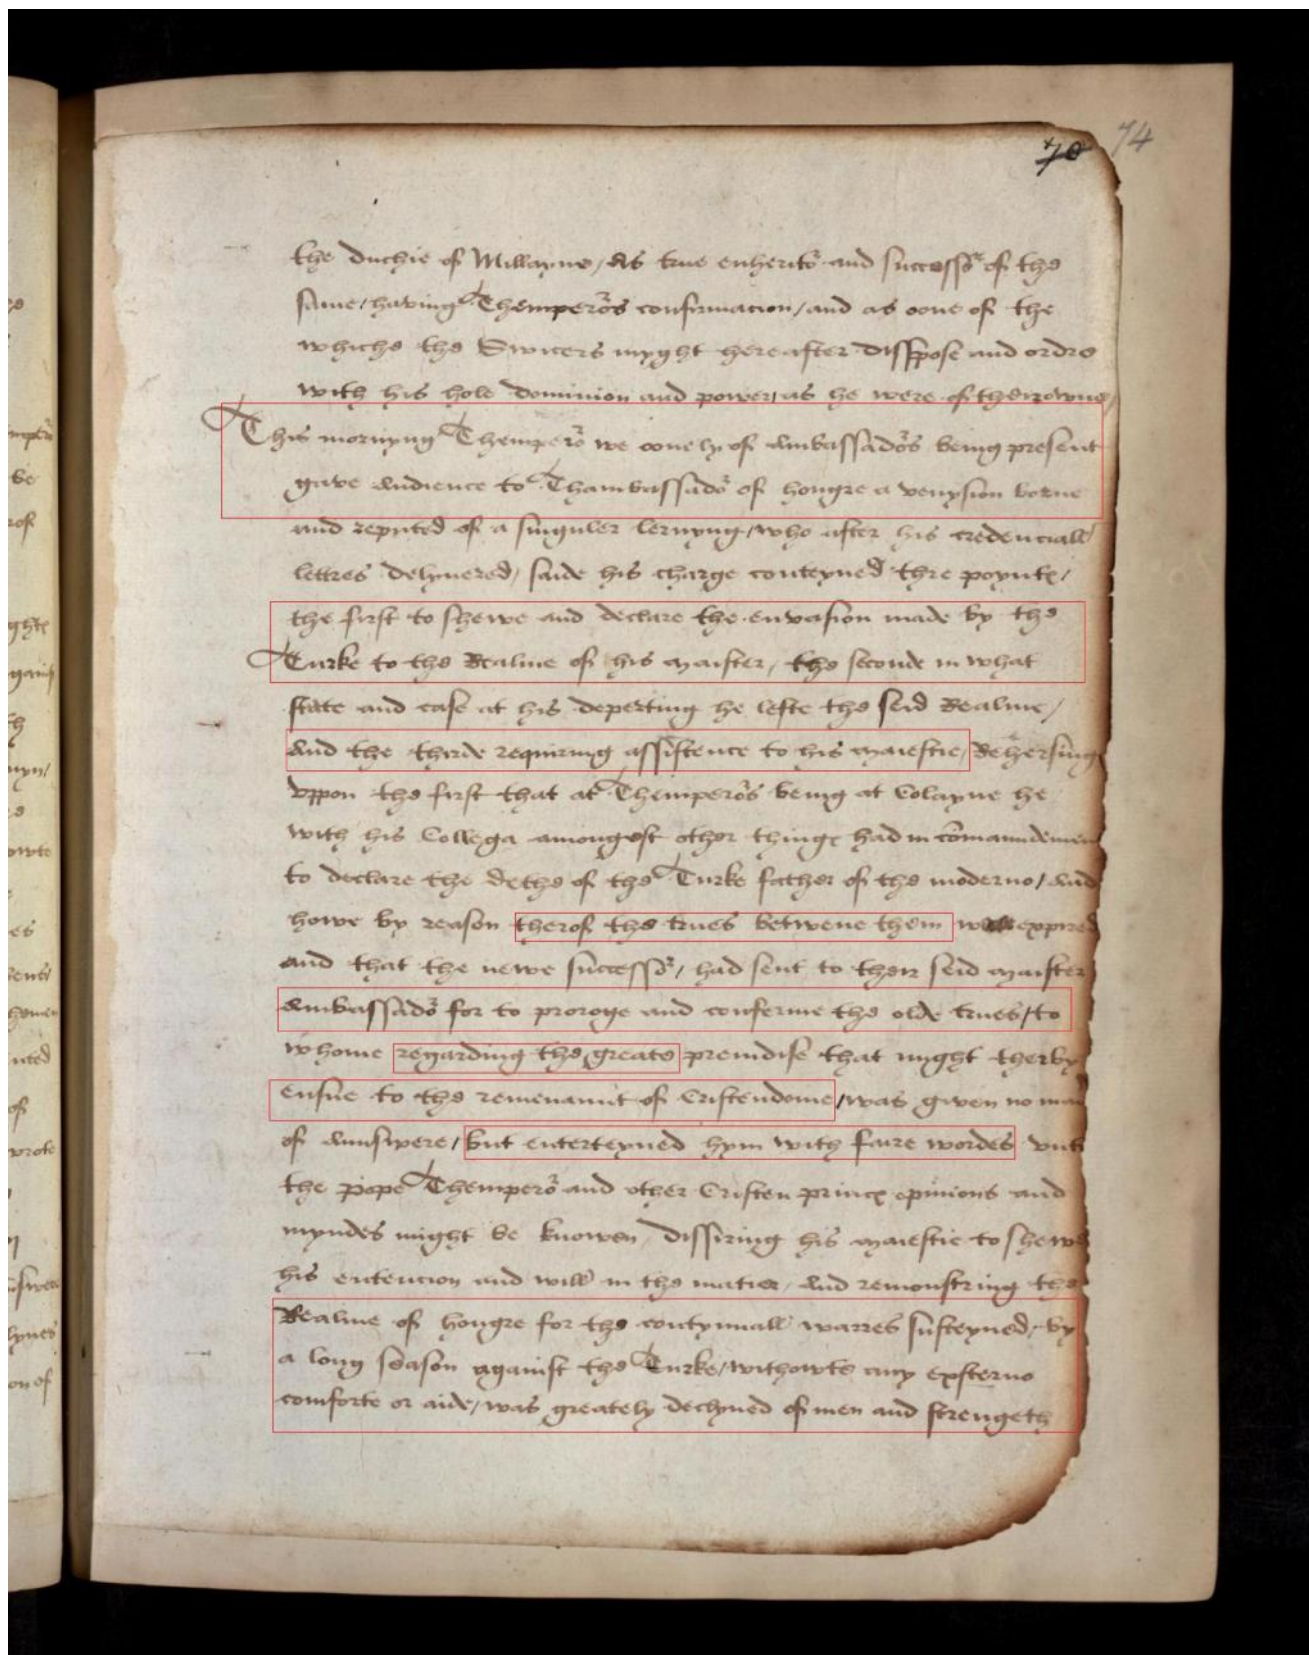 70 74
the duchie of Millayne / As true enherito and successor of the
same / having Themperors confirmacion / and as oone of the
whiche the Swicers myght hereafter disspose and ordre
with his hole dominion and power / as he were of their owne /
This mornyng Thempero we oonely of Ambassadors being present
gave Audience to Thambassado of hongre a venysion borne
and reputed of a singuler lernyng / who after his credenciall
lettres delyuered / saide his charge conteyned thre poynte /
the first to shewe and declare the envasion made by the
Turke to the Realme of his maister / the seconde in what
state and case at his deperting he lefte the seid Realme /
And the thirde requiring assistence to his maiestie / Rehersing
vppon the first that at Themperors being at Colayne he
with his Collega amongest other thinge had in comaundemen
to declare the dethe of the Turke father of the moderne / And
howe by reason therof the trues betwene them expired
and that the newe successor / had sent to their seid maister
Ambassado for to proroge and conferme the olde trues / to
whome regarding the greate preiudise that might therby
ensue to the remenaunt of Cristendome / was given no man
of Aunswere / but enterteyned hym with faire wordes vnt
the pope Thempero and other Cristen prince opinions and
myndes might be knowen / dissiring his maiestie to shewe
his entencion and will in the matier / And remonstring the
Realme of hongre for the contynuall warres susteyned / by
a long season against the Turke / withowte any externe
comforte or aide / was greately declyned of men and strengeth